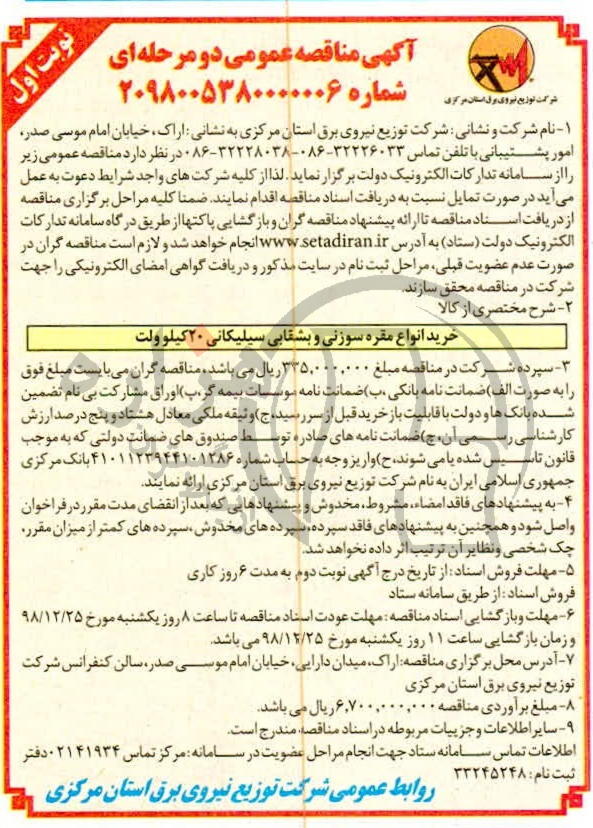 نوبت اول
آگهی مناقصه عمومی دو مرحله‌ای
شماره ۲۰۹۸۰۰۵۳۸۰۰۰۰۰۰۶
شرکت توزیع نیروی برق استان مرکزی
۱-نام شرکت و نشانی: شرکت توزیع نیروی برق استان مرکزی به نشانی: اراک، خیابان امام موسی صدر،
امور پشتیبانی با تلفن تماس ۳۲۲۲۶۰۳۳-۰۸۶-۳۲۲۲۸۰۳۸-۰۸۶ در نظر دارد مناقصه عمومی زیر
را از سامانه تدارکات الکترونیک دولت برگزار نماید. لذا از کلیه شرکت های واجد شرایط دعوت به عمل
می‌آید در صورت تمایل نسبت به دریافت اسناد مناقصه اقدام نمایند. ضمنا کلیه مراحل برگزاری مناقصه
از دریافت اسناد مناقصه تا ارائه پیشنهاد مناقصه گران و بازگشایی پاکتها از طریق درگاه سامانه تدارکات
الکترونیک دولت (ستاد) به آدرس www.setadiran.ir انجام خواهد شد و لازم است مناقصه گران در
صورت عدم عضویت قبلی، مراحل ثبت نام در سایت مذکور و دریافت گواهی امضای الکترونیکی را جهت
شرکت در مناقصه محقق سازند.
۲-شرح مختصری از کالا
خرید انواع مقره سوزنی و بشقابی سیلیکانی ۲۰کیلو ولت
۳-سپرده شرکت در مناقصه مبلغ ۳۳۵,۰۰۰,۰۰۰ ریال می باشد، مناقصه گران می بایست مبلغ فوق
را به صورت الف)ضمانت نامه بانکی ،ب)ضمانت نامه موسسات بیمه گر،پ)اوراق مشارکت بی نام تضمین
شده بانک ها و دولت با قابلیت باز خرید قبل از سررسید، ج)وثیقه ملکی معادل هشتاد و پنج درصد ارزش
کارشناسی رسمی آن، چ)ضمانت نامه های صادره توسط صندوق های ضمانت دولتی که به موجب
قانون تاسیس شده یا می شوند، ح)واریز وجه به حساب شماره ۴۱۰۱۱۲۳۹۴۴۱۰۱۲۸۶ بانک مرکزی
جمهوری اسلامی ایران به نام شرکت توزیع نیروی برق استان مرکزی ارائه نمایند.
۴-به پیشنهادهای فاقد امضاء، مشروط، مخدوش و پیشنهادهایی که بعد از انقضای مدت مقرر در فراخوان
واصل شود و همچنین به پیشنهادهای فاقد سپرده، سپرده های مخدوش، سپرده های کمتر از میزان مقرر،
چک شخصی و نظایر آن ترتیب اثر داده نخواهد شد.
۵-مهلت فروش اسناد: از تاریخ درج آگهی نوبت دوم به مدت ۶ روز کاری
فروش اسناد: از طریق سامانه ستاد
۶-مهلت وبازگشایی اسناد مناقصه: مهلت عودت اسناد مناقصه تا ساعت ۸ روز یکشنبه مورخ ۹۸/۱۲/۲۵
و زمان بازگشایی ساعت ۱۱ روز یکشنبه مورخ ۹۸/۱۲/۲۵ می باشد.
۷-آدرس محل برگزاری مناقصه:اراک، میدان دارایی، خیابان امام موسی صدر، سالن کنفرانس شرکت
توزیع نیروی برق استان مرکزی
۸-مبلغ برآوردی مناقصه ۶,۷۰۰,۰۰۰,۰۰۰ ریال می باشد.
۹-سایر اطلاعات و جزییات مربوطه در اسناد مناقصه مندرج است.
اطلاعات تماس سامانه ستاد جهت انجام مراحل عضویت در سامانه: مرکز تماس ۰۲۱۴۱۹۳۴ دفتر
ثبت نام: ۳۳۲۴۵۲۴۸
روابط عمومی شرکت توزیع نیروی برق استان مرکزی